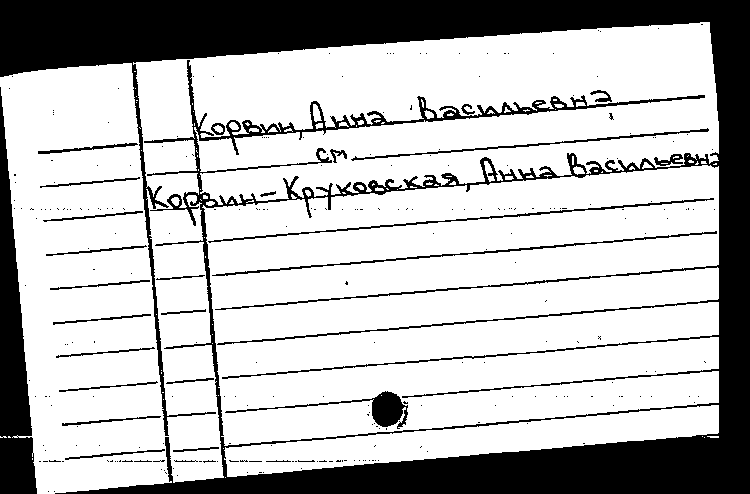 Корвин, Анна Васильевна
см.
Корвин-Круковская, Анна Васильевна